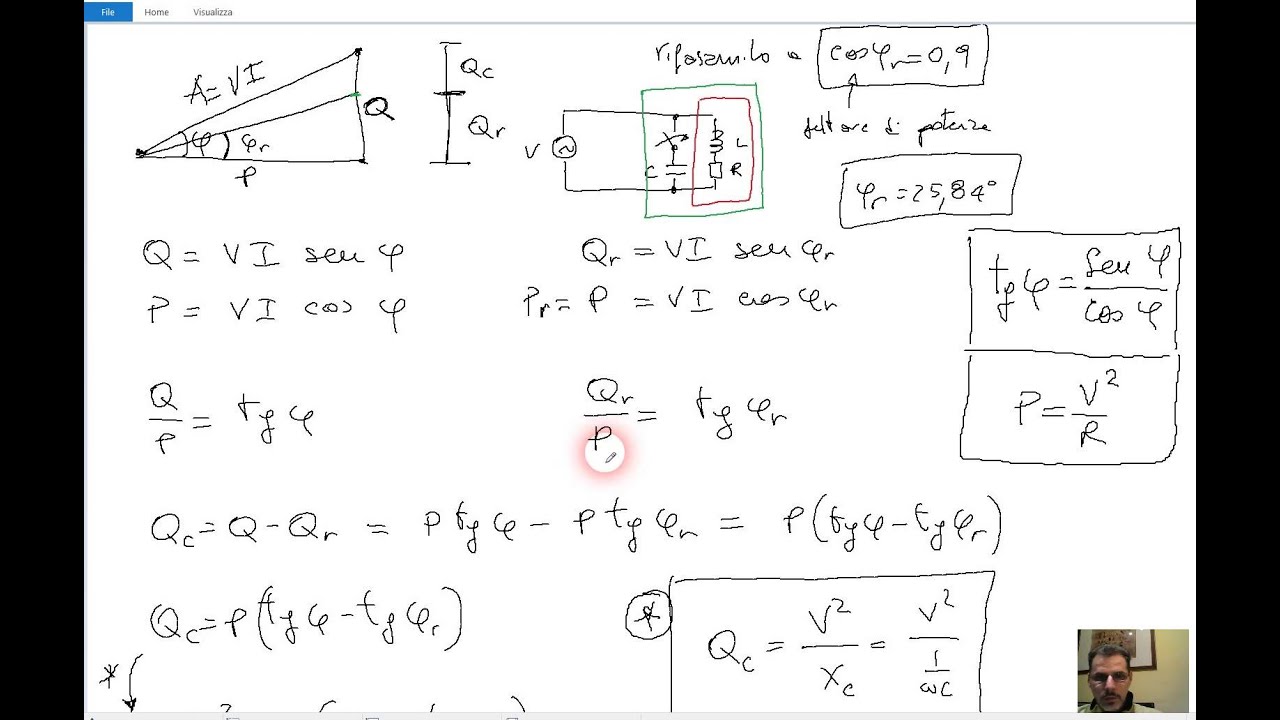 File Home Visualizza
A=VI
Q
φ φr
P
Qc
Qr
rifasamilo a cosφr=0,9
fattore di potenza
V
C
L
R
φr=25,84°
Q = VI sen φ
Qr = VI sen φr
P = VI cos φ
Pr = P = VI cos φr
tg φ = sen φ / cos φ
Q/P = tg φ
Qr/P = tg φr
P = V²/R
Qc = Q - Qr = P tg φ - P tg φr = P(tg φ - tg φr)
Qc = P(tg φ - tg φr)
*
Qc = V²/Xc = V²/(1/ωC)
*